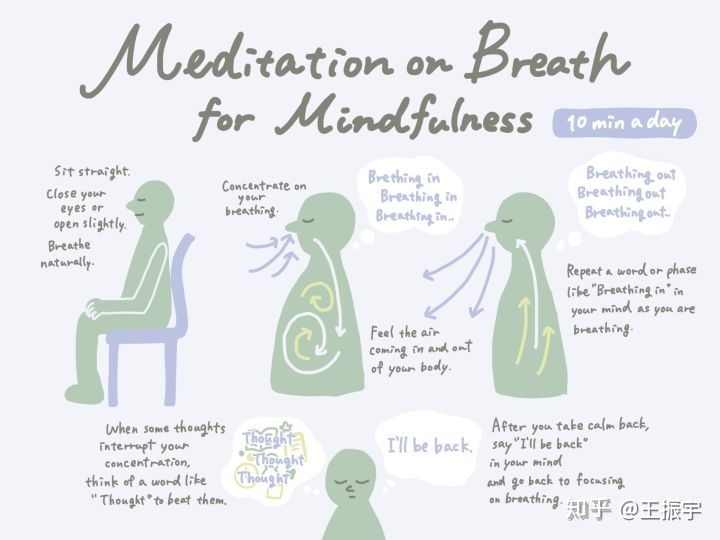 Meditation on Breath
for Mindfulness
10 min a day
Sit straight.
Close your
eyes or
open slightly.
Breathe
naturally.
Concentrate on
your
breathing.
Brething in
Breathing in
Breathing in..
Feel the air
coming in and out
of your body.
Breathing out
Breathing out
Breathing out..
Repeat a word or phase
like "Breathing in" in
your mind as you are
breathing.
When some thoughts
interrupt your
concentration,
think of a word like
"Thought" to beat them.
Thought
Thought
Thought
I'll be back.
After you take calm back,
say "I'll be back"
in your mind
and go back to focusing
on breathing.
知乎 @王振宇